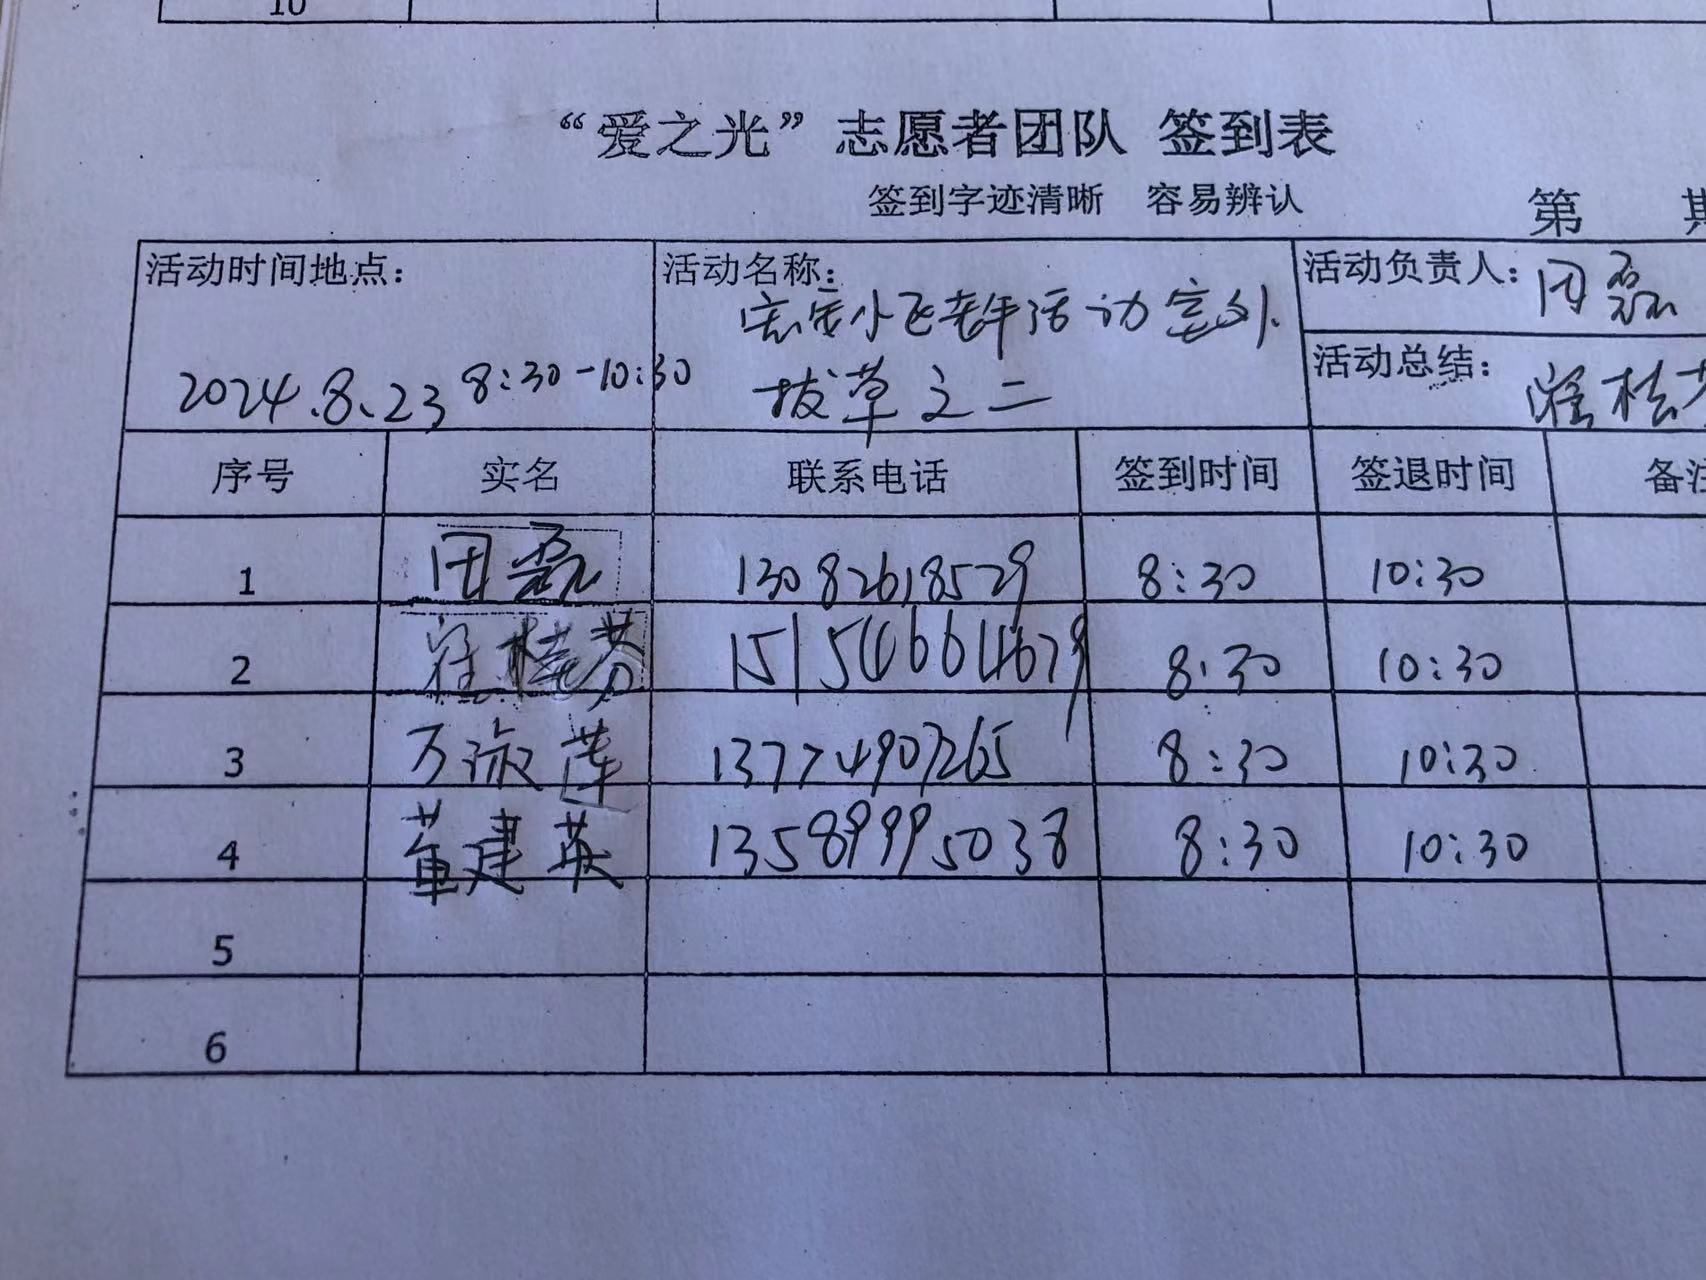 10
“爱之光”志愿者团队 签到表
签到字迹清晰 容易辨认
第 期
活动时间地点： 活动名称： 活动负责人：田磊
宏安小区老年活动室外
2024.8.23 8:30-10:30 拔草之二 活动总结：崔桂芳
序号 实名 联系电话 签到时间 签退时间 备注
1 田磊 13082618529 8:30 10:30
2 崔桂芳 15154664679 8:30 10:30
3 万淑莲 13774907265 8:30 10:30
4 董建英 13589995038 8:30 10:30
5
6